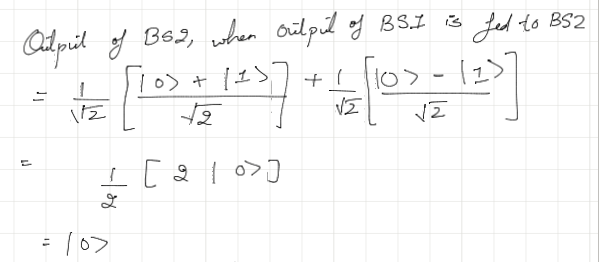 Output of BS2, when output of BS1 is fed to BS2
= 1/√2 [ (|0> + |1>)/√2 ] + 1/√2 [ (|0> - |1>)/√2 ]
= 1/2 [ 2 |0> ]
= |0>